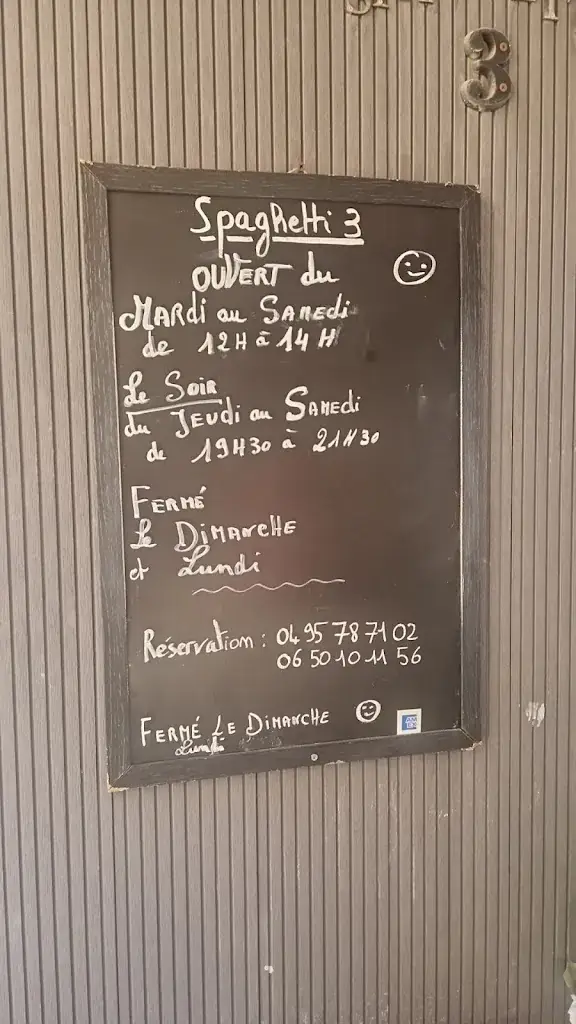 3
Spaghetti 3
OUVERT du
MARdi au SAMEdi
de 12H à 14H
Le SOIR
du JEUdi au SAMEdi
de 19H30 à 21H30
FERMÉ
Le DIMANcHE
et Lundi
Réservation : 04 95 78 71 02
06 50 10 11 56
FERMÉ LE DIMANCHE
Lundi